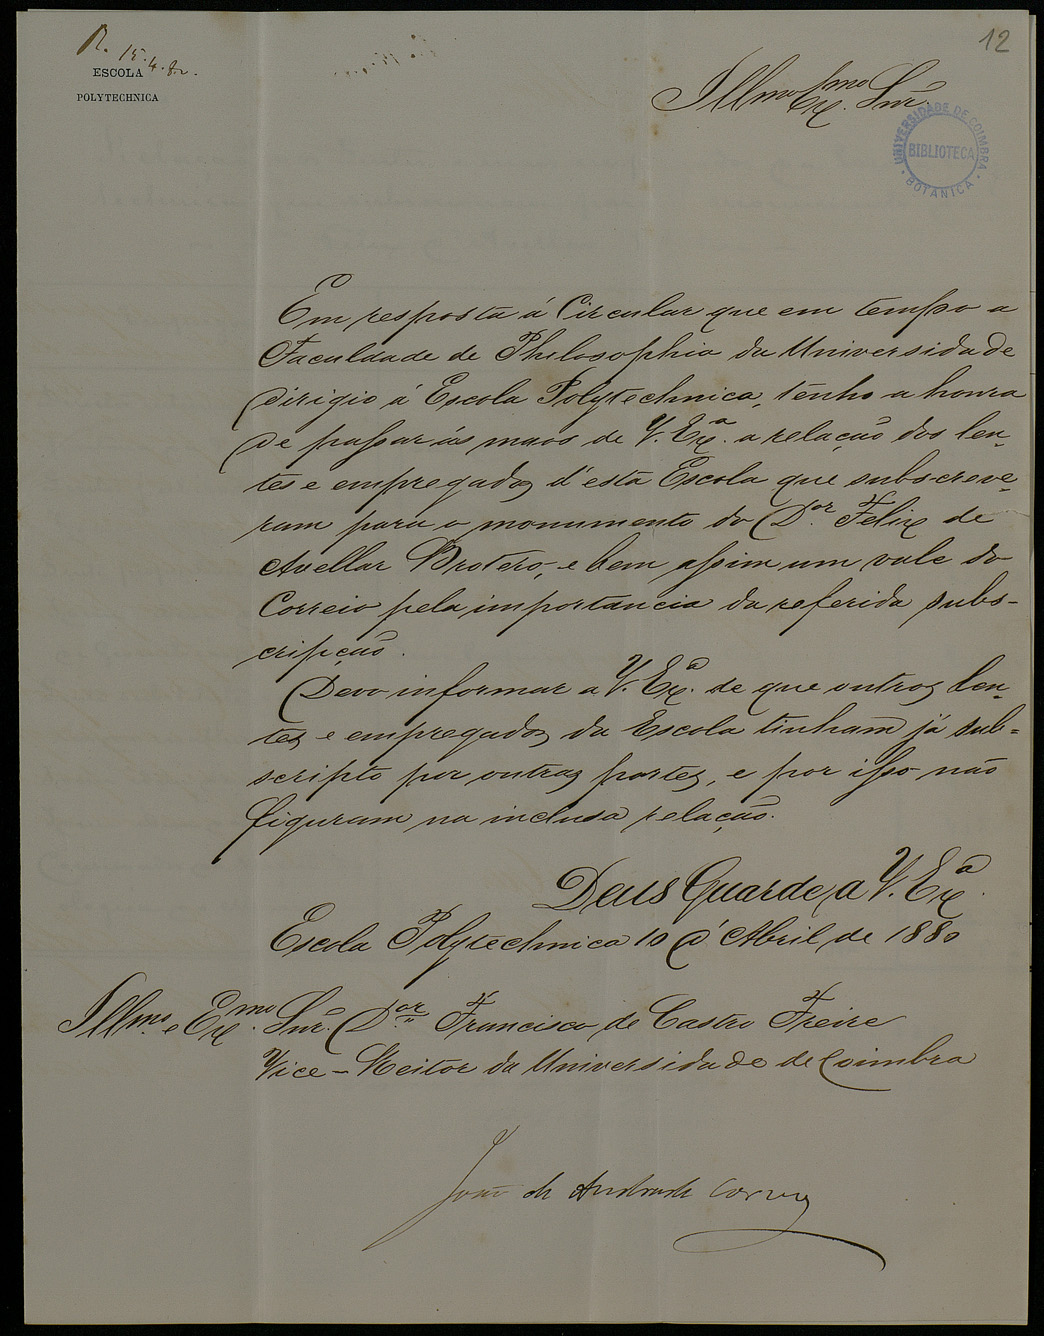 12
R. 15.4.82.
ESCOLA
POLYTECHNICA
Illmo Exmo Snr.
UNIVERSIDADE DE COIMBRA
BIBLIOTECA
BOTANICA
Em resposta á Circular que em tempo a
Faculdade de Philosophia da Universidade
dirigio á Escola Polytechnica, tenho a honra
de passar ás maos de V. Exª. a relação dos len-
tes e empregados d'esta Escola que subscreve-
ram para o monumento do Dor. Felix de
Avellar Brotero, e bem assim um vale do
Correio pela importancia da referida subs-
cripção.
Devo informar a V. Exª. de que outros len-
tes e empregados da Escola tinham já sub-
scripto por outras partes, e por isso não
figuram na inclusa relação.
Deus Guarde a V. Exª.
Escola Polytechnica 10 d'Abril de 1880
Illmo. e Exmo. Snr. Dor. Francisco de Castro Freire
Vice-Reitor da Universidade de Coimbra
João de Andrade Corvo